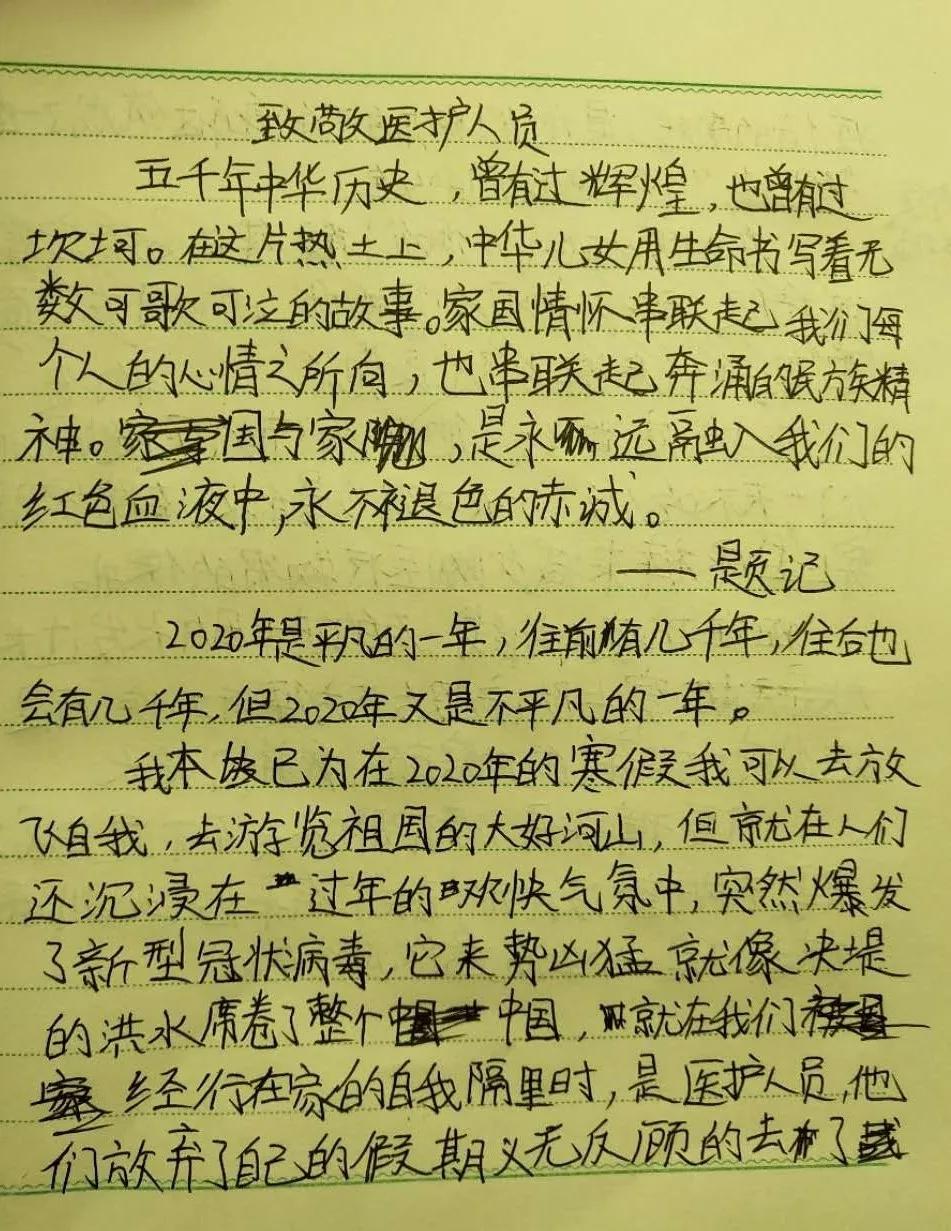 致敬医护人员
五千年中华历史，曾有过辉煌，也曾有过
坎坷。在这片热土上，中华儿女用生命书写着无
数可歌可泣的故事。家国情怀串联起我们每
个人的心情之所向，也串联起奔涌的民族精
神。家国与家，是永远融入我们的
红色血液中，永不褪色的赤诚。
——题记
2020年是平凡的一年，往前有几千年，往后也
会有几千年，但2020年又是不平凡的一年。
我本已为在2020年的寒假我可以去放
飞自我，去游览祖国的大好河山，但就在人们
还沉浸在过年的欢快气氛中，突然爆发
了新型冠状病毒，它来势凶猛就像决堤
的洪水席卷了整个中国，就在我们
经行在家的自我隔里时，是医护人员，他
们放弃了自己的假期义无反顾的去了